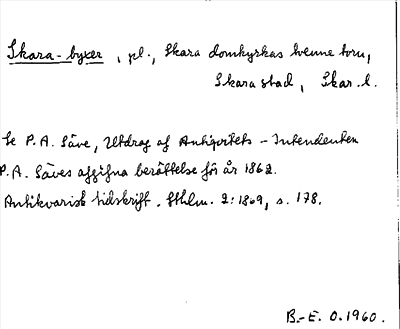 Skara-byxer, pl., Skara domkyrkas tvenne torn,
Skara stad, Skar. l.
Se P. A. Säve, Utdrag af Antiqvitets-Intendenten
P. A. Säves afgifna berättelse för år 1862.
Antikvarisk tidskrift. Sthlm. 2:1869, s. 178.
B.-E. O. 1960.